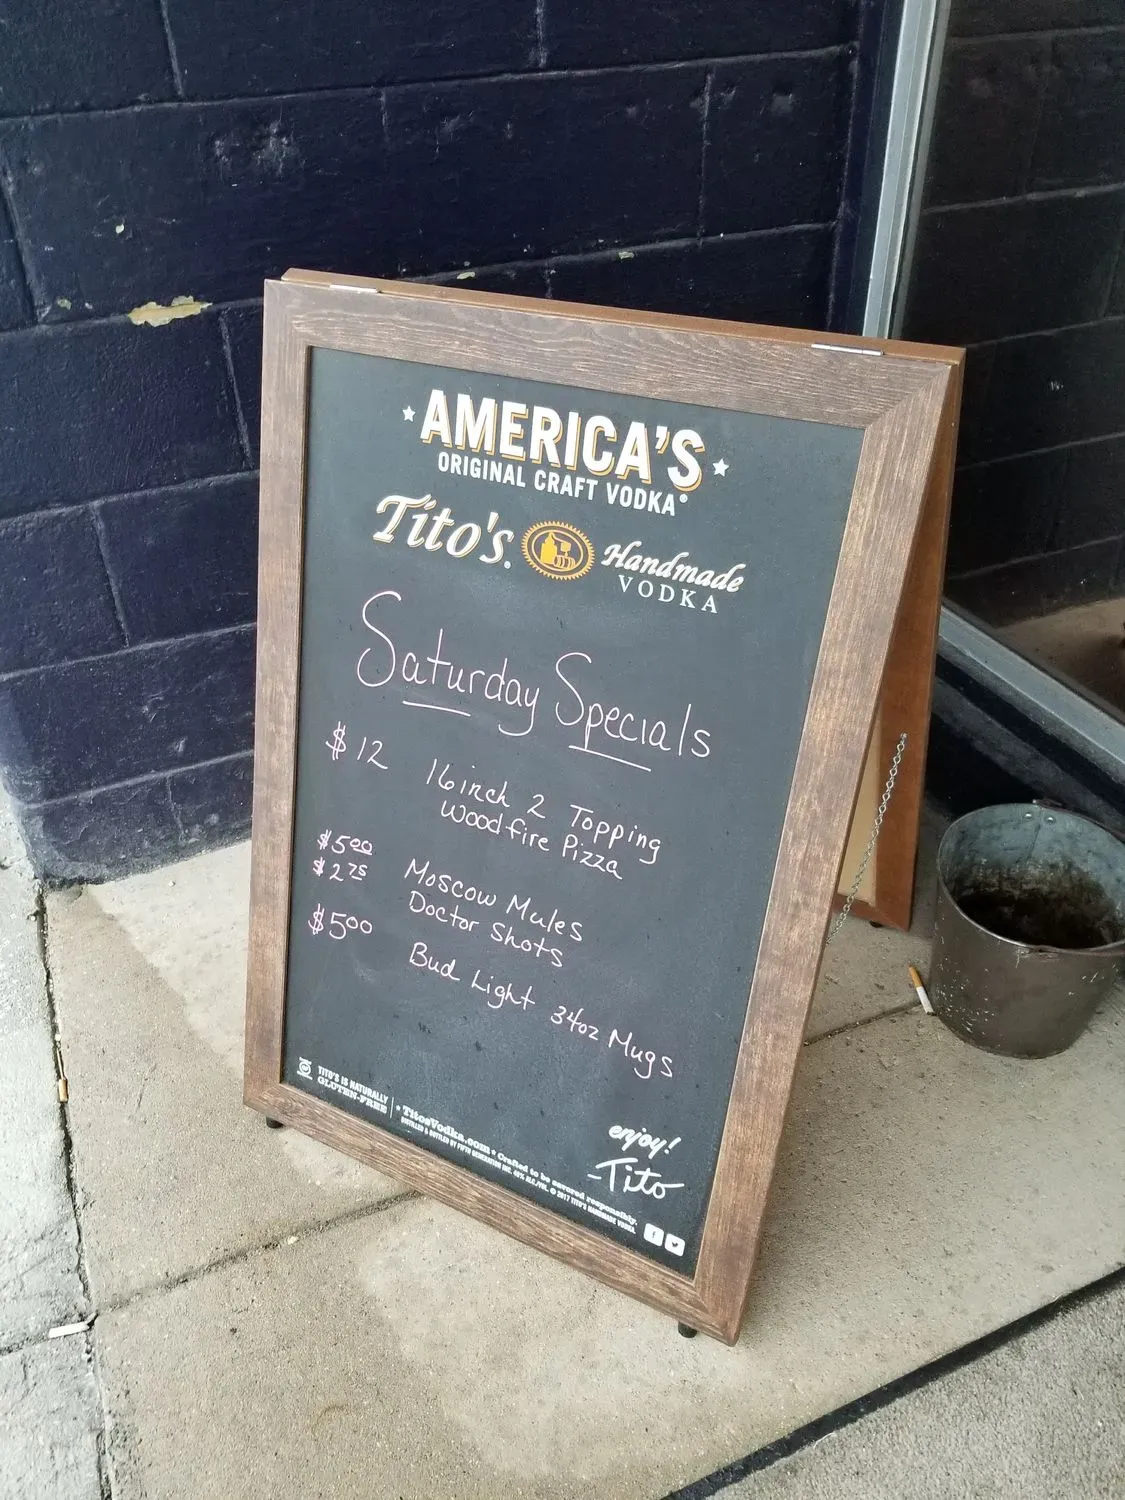 AMERICA'S
ORIGINAL CRAFT VODKA®
Tito's. Handmade
VODKA
Saturday Specials
$12 16inch 2 Topping
Woodfire Pizza
$5.00 Moscow Mules
$2.75 Doctor Shots
$5.00 Bud Light 34oz Mugs
TITO'S IS NATURALLY
GLUTEN-FREE
TitosVodka.com • Crafted to be savored responsibly.
DISTILLED & BOTTLED BY FIFTH GENERATION INC. 40% ALC./VOL. © 2017 TITO'S HANDMADE VODKA.
enjoy!
-Tito